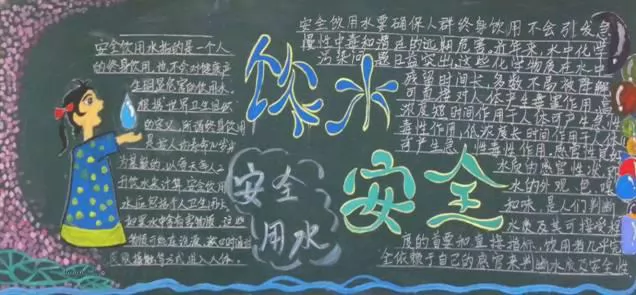 安全饮用水指的是一个人
的终身饮用,也不会对健康产
生明显危害的饮用水.
根据世界卫生组织
的定义,所谓终身饮用
是按人均寿命70岁
为基数的,以每天每人2
用饮水量计算.安全饮用
水应包括个人卫生用水
如果水中含有害物质,这些
物质可能在洗澡、漱口时通过
接触等方式进入人体.
饮水
安全
安全
用水
安全饮用水要确保人群终身饮用不会引发急
慢性中毒和潜在的远期危害.近年来,水中化学
污染问题日益突出,这些化学物质在水中
存留时间长,多数不易被降解
可直接对人体产生毒害作用,高
浓度短时间作用于人体可产生急
毒性作用,低浓度长时间作用于人体
可产生慢性毒性作用,感官性
水质的感官性状
水的外观、色、
和味,是人们判断
水质及其可接受
度的首要和直接指标,饮用者几乎完
全依赖于自己的感官来判断水质及安全性